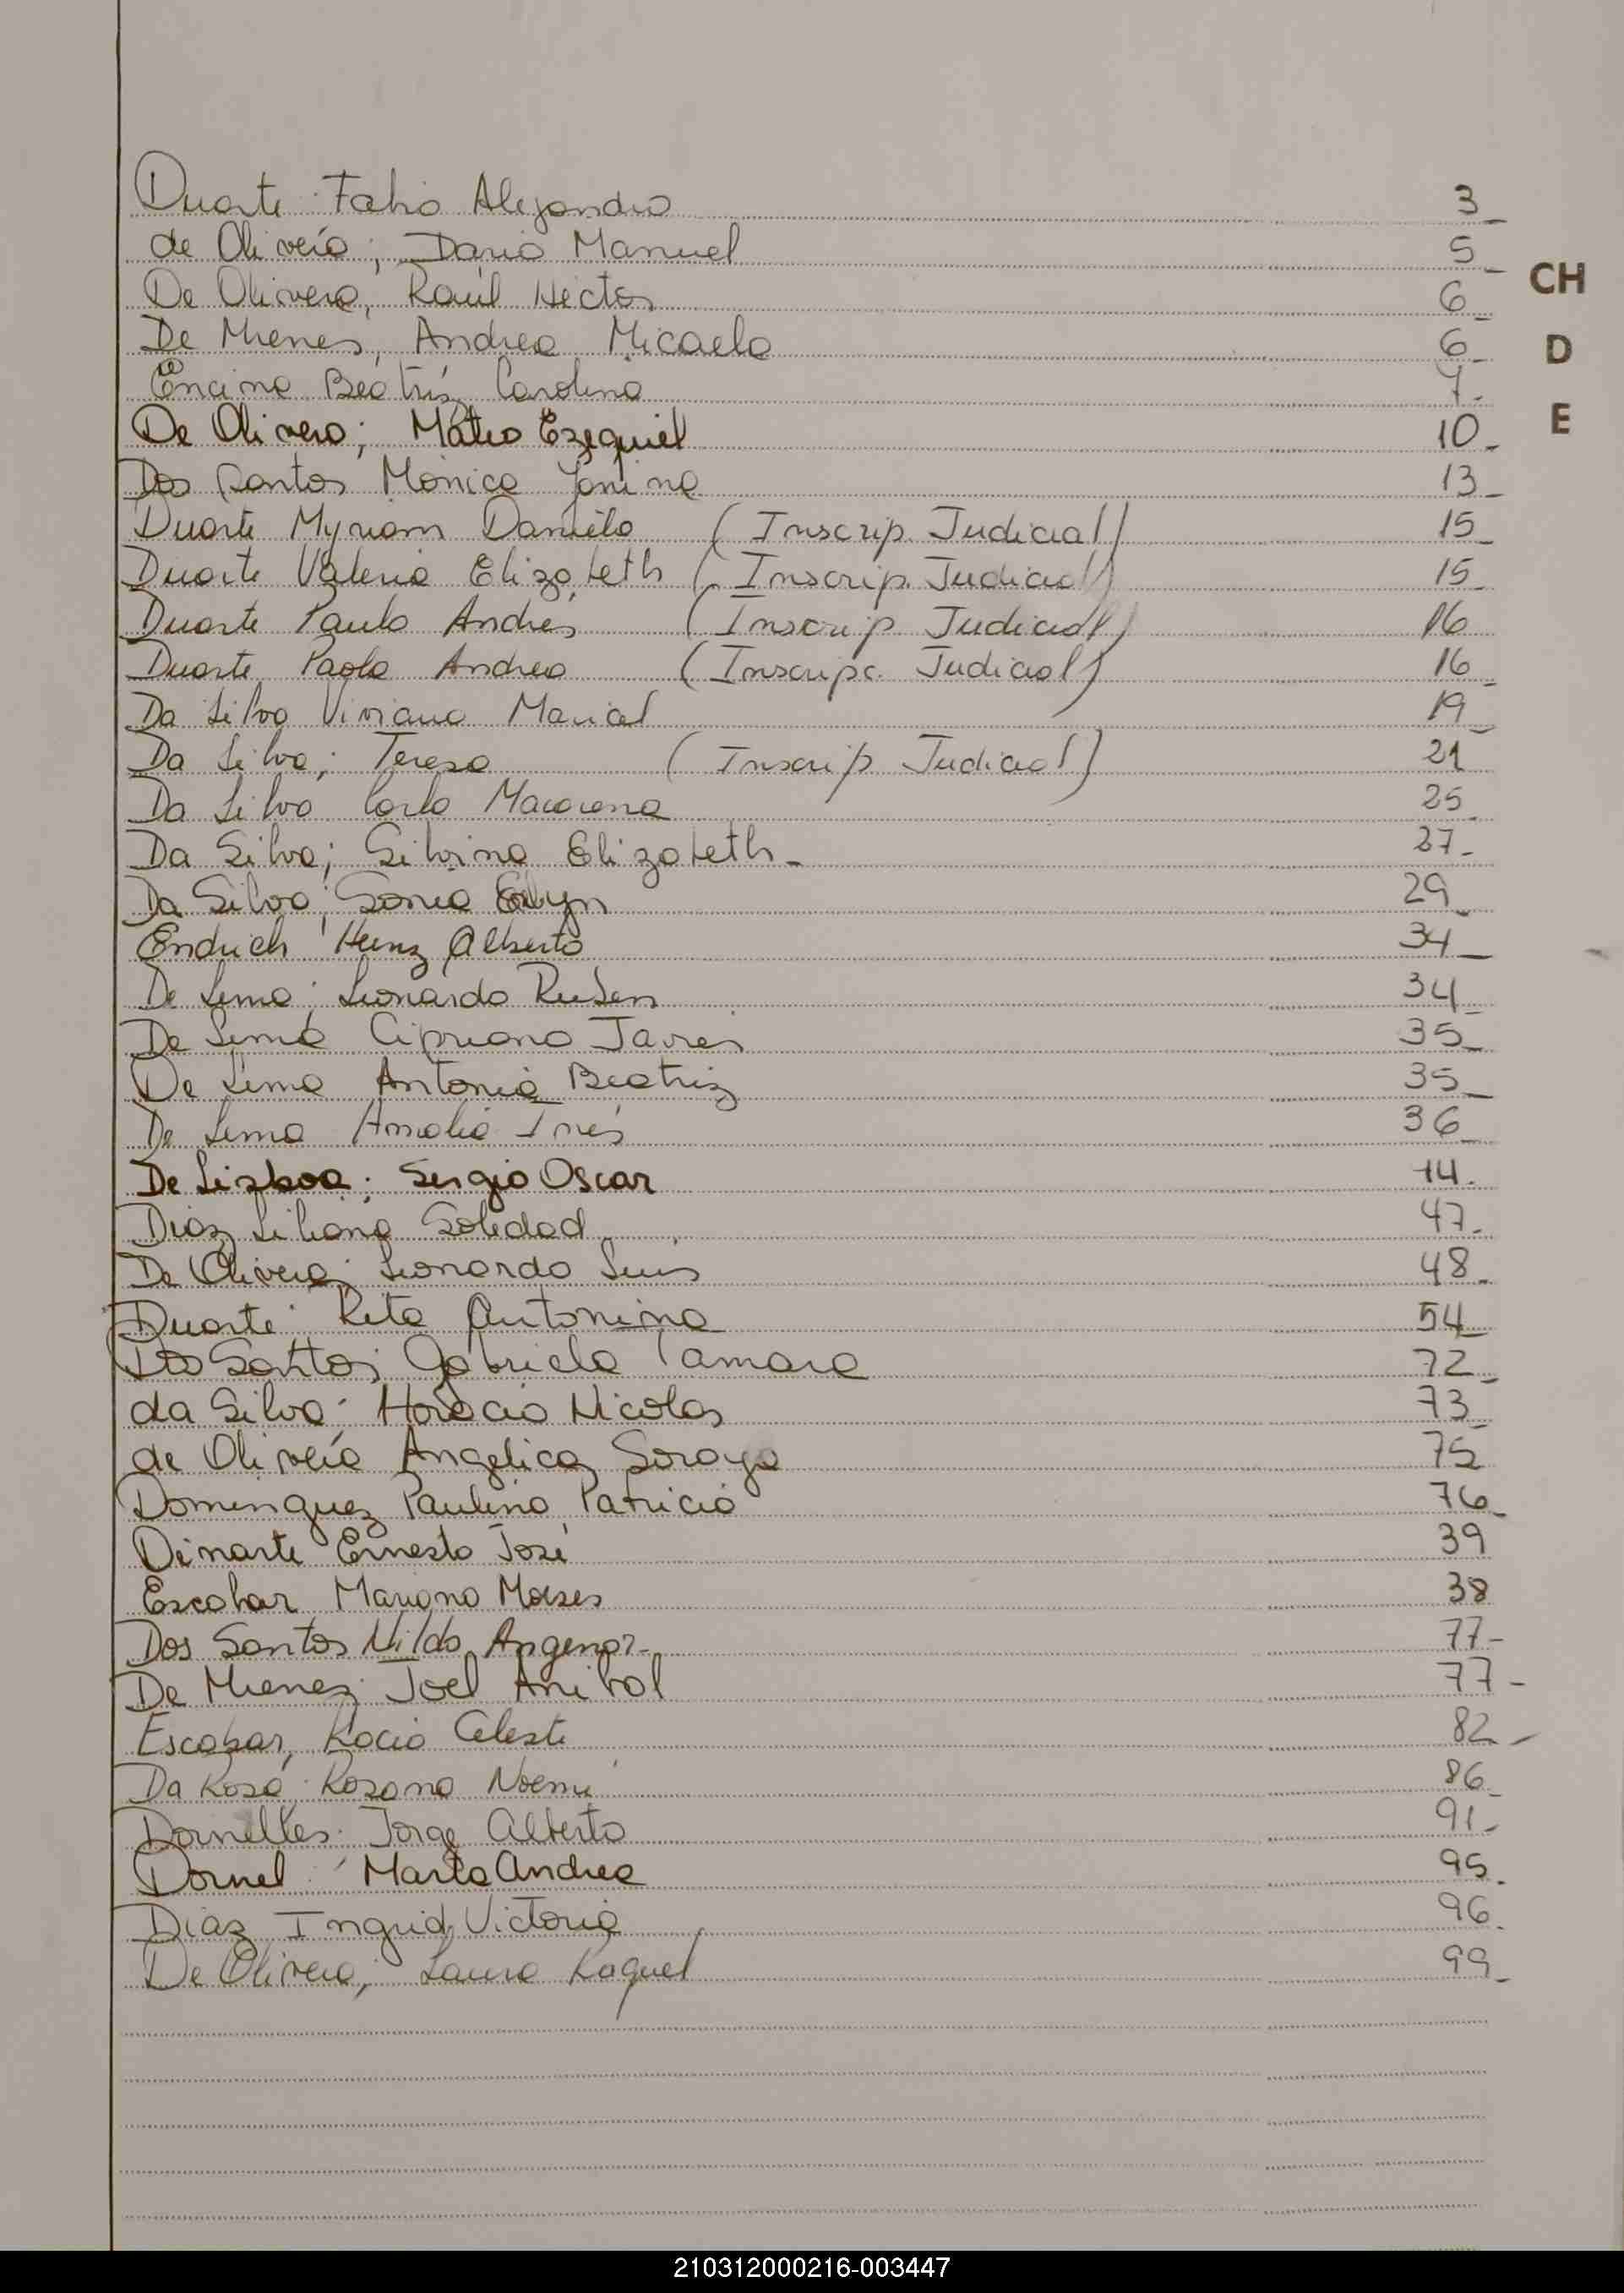 Duarte Fabio Alejandro 3
de Olivera; Dario Manuel 5
De Olivera, Raúl Hector 6
De Mienes, Andrea Micaela 6
Encina Beatriz Carolina 7
De Olivera; Mateo Ezequiel 10
Dos Santos Monica Yanina 13
Duarte Myriam Daniela (Inscrip. Judicial) 15
Duarte Valeria Elizabeth (Inscrip. Judicial) 15
Duarte Paulo Andrés (Inscrip Judicial) 16
Duarte Paola Andrea (Inscripc. Judicial) 16
Da Silva Viviana Maricel 19
Da Silva; Teresa (Inscrip Judicial) 21
Da Silva Carla Macarena 25
Da Silva; Silvina Elizabeth 27
Da Silva; Sonia 29
Endrich Heinz Alberto 34
De Lima; Leonardo Ruben 34
De Lima Cipriano Javier 35
De Lima Antonia Beatriz 35
De Lima Amalia Inés 36
De Lizboa; Sergio Oscar 14
Diaz Liliana Soledad 47
De Olivera; Leonardo Luis 48
Duarte Rita Antonina 54
Dos Santos; Gabriela Tamara 72
da Silva Horacio Nicolas 73
de Olivera Angelica Soraya 75
Dominguez Paulino Patricio 76
Dinarte Ernesto José 39
Escobar Mariano Moises 38
Dos Santos Nildo Angenor 77
De Mienez; Joel Anibal 77
Escobar, Rocio Celeste 82
Da Rosa Rosana Noemi 86
Dornelles Jorge Alberto 91
Dornel Marta Andrea 95
Diaz Ingrid Victoria 96
De Olivera; Laura Raquel 99
CH
D
E
210312000216-003447